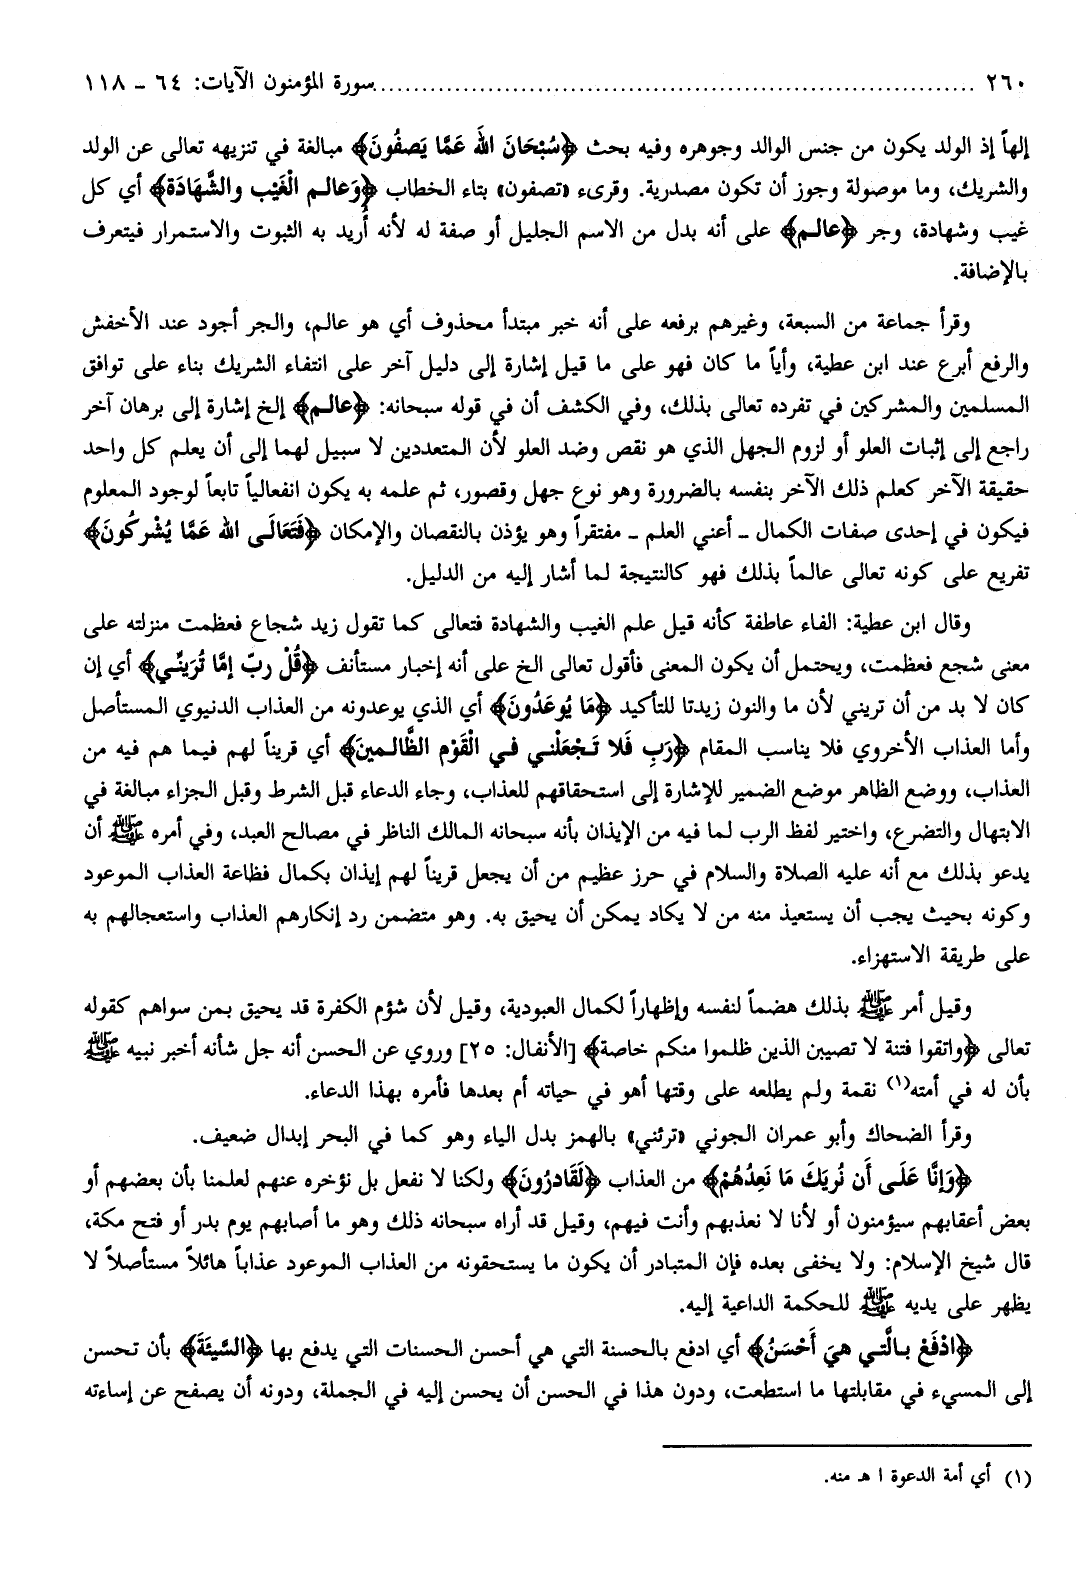 ٢٦٠ ........................................................................ سورة المؤمنون الآيات: ٦٤ ـ ١١٨
إلهاً إذ الولد يكون من جنس الوالد وجوهره وفيه بحث ﴿سُبْحَانَ الله عَمَّا يَصفُونَ﴾ مبالغة في تنزيهه تعالى عن الولد
والشريك، وما موصولة وجوز أن تكون مصدرية. وقرىء «تصفون» بتاء الخطاب ﴿وَعالم الْغَيْب والشَّهَادَة﴾ أي كل
غيب وشهادة، وجر ﴿عالم﴾ على أنه بدل من الاسم الجليل أو صفة له لأنه أُريد به الثبوت والاستمرار فيتعرف
بالإضافة.
وقرأ جماعة من السبعة، وغيرهم برفعه على أنه خبر مبتدأ محذوف أي هو عالم، والجر أجود عند الأخفش
والرفع أبرع عند ابن عطية، وأياً ما كان فهو على ما قيل إشارة إلى دليل آخر على انتفاء الشريك بناء على توافق
المسلمين والمشركين في تفرده تعالى بذلك، وفي الكشف أن في قوله سبحانه: ﴿عالم﴾ إلخ إشارة إلى برهان آخر
راجع إلى إثبات العلو أو لزوم الجهل الذي هو نقص وضد العلو لأن المتعددين لا سبيل لهما إلى أن يعلم كل واحد
حقيقة الآخر كعلم ذلك الآخر بنفسه بالضرورة وهو نوع جهل وقصور، ثم علمه به يكون انفعالياً تابعاً لوجود المعلوم
فيكون في إحدى صفات الكمال ـ أعني العلم ـ مفتقراً وهو يؤذن بالنقصان والإمكان ﴿فَتَعَالَى الله عَمَّا يُشْركُونَ﴾
تفريع على كونه تعالى عالماً بذلك فهو كالنتيجة لما أشار إليه من الدليل.
وقال ابن عطية: الفاء عاطفة كأنه قيل علم الغيب والشهادة فتعالى كما تقول زيد شجاع فعظمت منزلته على
معنى شجع فعظمت، ويحتمل أن يكون المعنى فأقول تعالى الخ على أنه إخبار مستأنف ﴿قُلْ ربّ إمَّا تُرَينِّي﴾ أي إن
كان لا بد من أن تريني لأن ما والنون زيدتا للتأكيد ﴿مَا يُوعَدُونَ﴾ أي الذي يوعدونه من العذاب الدنيوي المستأصل
وأما العذاب الأخروي فلا يناسب المقام ﴿رَبِ فَلا تَجْعَلْني في الْقَوْم الظَّالمينَ﴾ أي قريناً لهم فيما هم فيه من
العذاب، ووضع الظاهر موضع الضمير للإشارة إلى استحقاقهم للعذاب، وجاء الدعاء قبل الشرط وقبل الجزاء مبالغة في
الابتهال والتضرع، واختير لفظ الرب لما فيه من الإيذان بأنه سبحانه المالك الناظر في مصالح العبد، وفي أمره ﷺ أن
يدعو بذلك مع أنه عليه الصلاة والسلام في حرز عظيم من أن يجعل قريناً لهم إيذان بكمال فظاعة العذاب الموعود
وكونه بحيث يجب أن يستعيذ منه من لا يكاد يمكن أن يحيق به. وهو متضمن رد إنكارهم العذاب واستعجالهم به
على طريقة الاستهزاء.
وقيل أمر ﷺ بذلك هضماً لنفسه وإظهاراً لكمال العبودية، وقيل لأن شؤم الكفرة قد يحيق بمن سواهم كقوله
تعالى ﴿واتقوا فتنة لا تصيبن الذين ظلموا منكم خاصة﴾ [الأنفال: ٢٥] وروي عن الحسن أنه جل شأنه أخبر نبيه ﷺ
بأن له في أمته(١) نقمة ولم يطلعه على وقتها أهو في حياته أم بعدها فأمره بهذا الدعاء.
وقرأ الضحاك وأبو عمران الجوني «ترئني» بالهمز بدل الياء وهو كما في البحر إبدال ضعيف.
﴿وَإنَّا عَلَى أَن نُريَكَ مَا نَعِدُهُمْ﴾ من العذاب ﴿لَقَادرُونَ﴾ ولكنا لا نفعل بل نؤخره عنهم لعلمنا بأن بعضهم أو
بعض أعقابهم سيؤمنون أو لأنا لا نعذبهم وأنت فيهم، وقيل قد أراه سبحانه ذلك وهو ما أصابهم يوم بدر أو فتح مكة،
قال شيخ الإسلام: ولا يخفى بعده فإن المتبادر أن يكون ما يستحقونه من العذاب الموعود عذاباً هائلاً مستأصلاً لا
يظهر على يديه ﷺ للحكمة الداعية إليه.
﴿ادْفَعْ بالَّتي هيَ أَحْسَنُ﴾ أي ادفع بالحسنة التي هي أحسن الحسنات التي يدفع بها ﴿السَّيئَةَ﴾ بأن تحسن
إلى المسيء في مقابلتها ما استطعت، ودون هذا في الحسن أن يحسن إليه في الجملة، ودونه أن يصفح عن إساءته
(١) أي أمة الدعوة ا هـ منه.